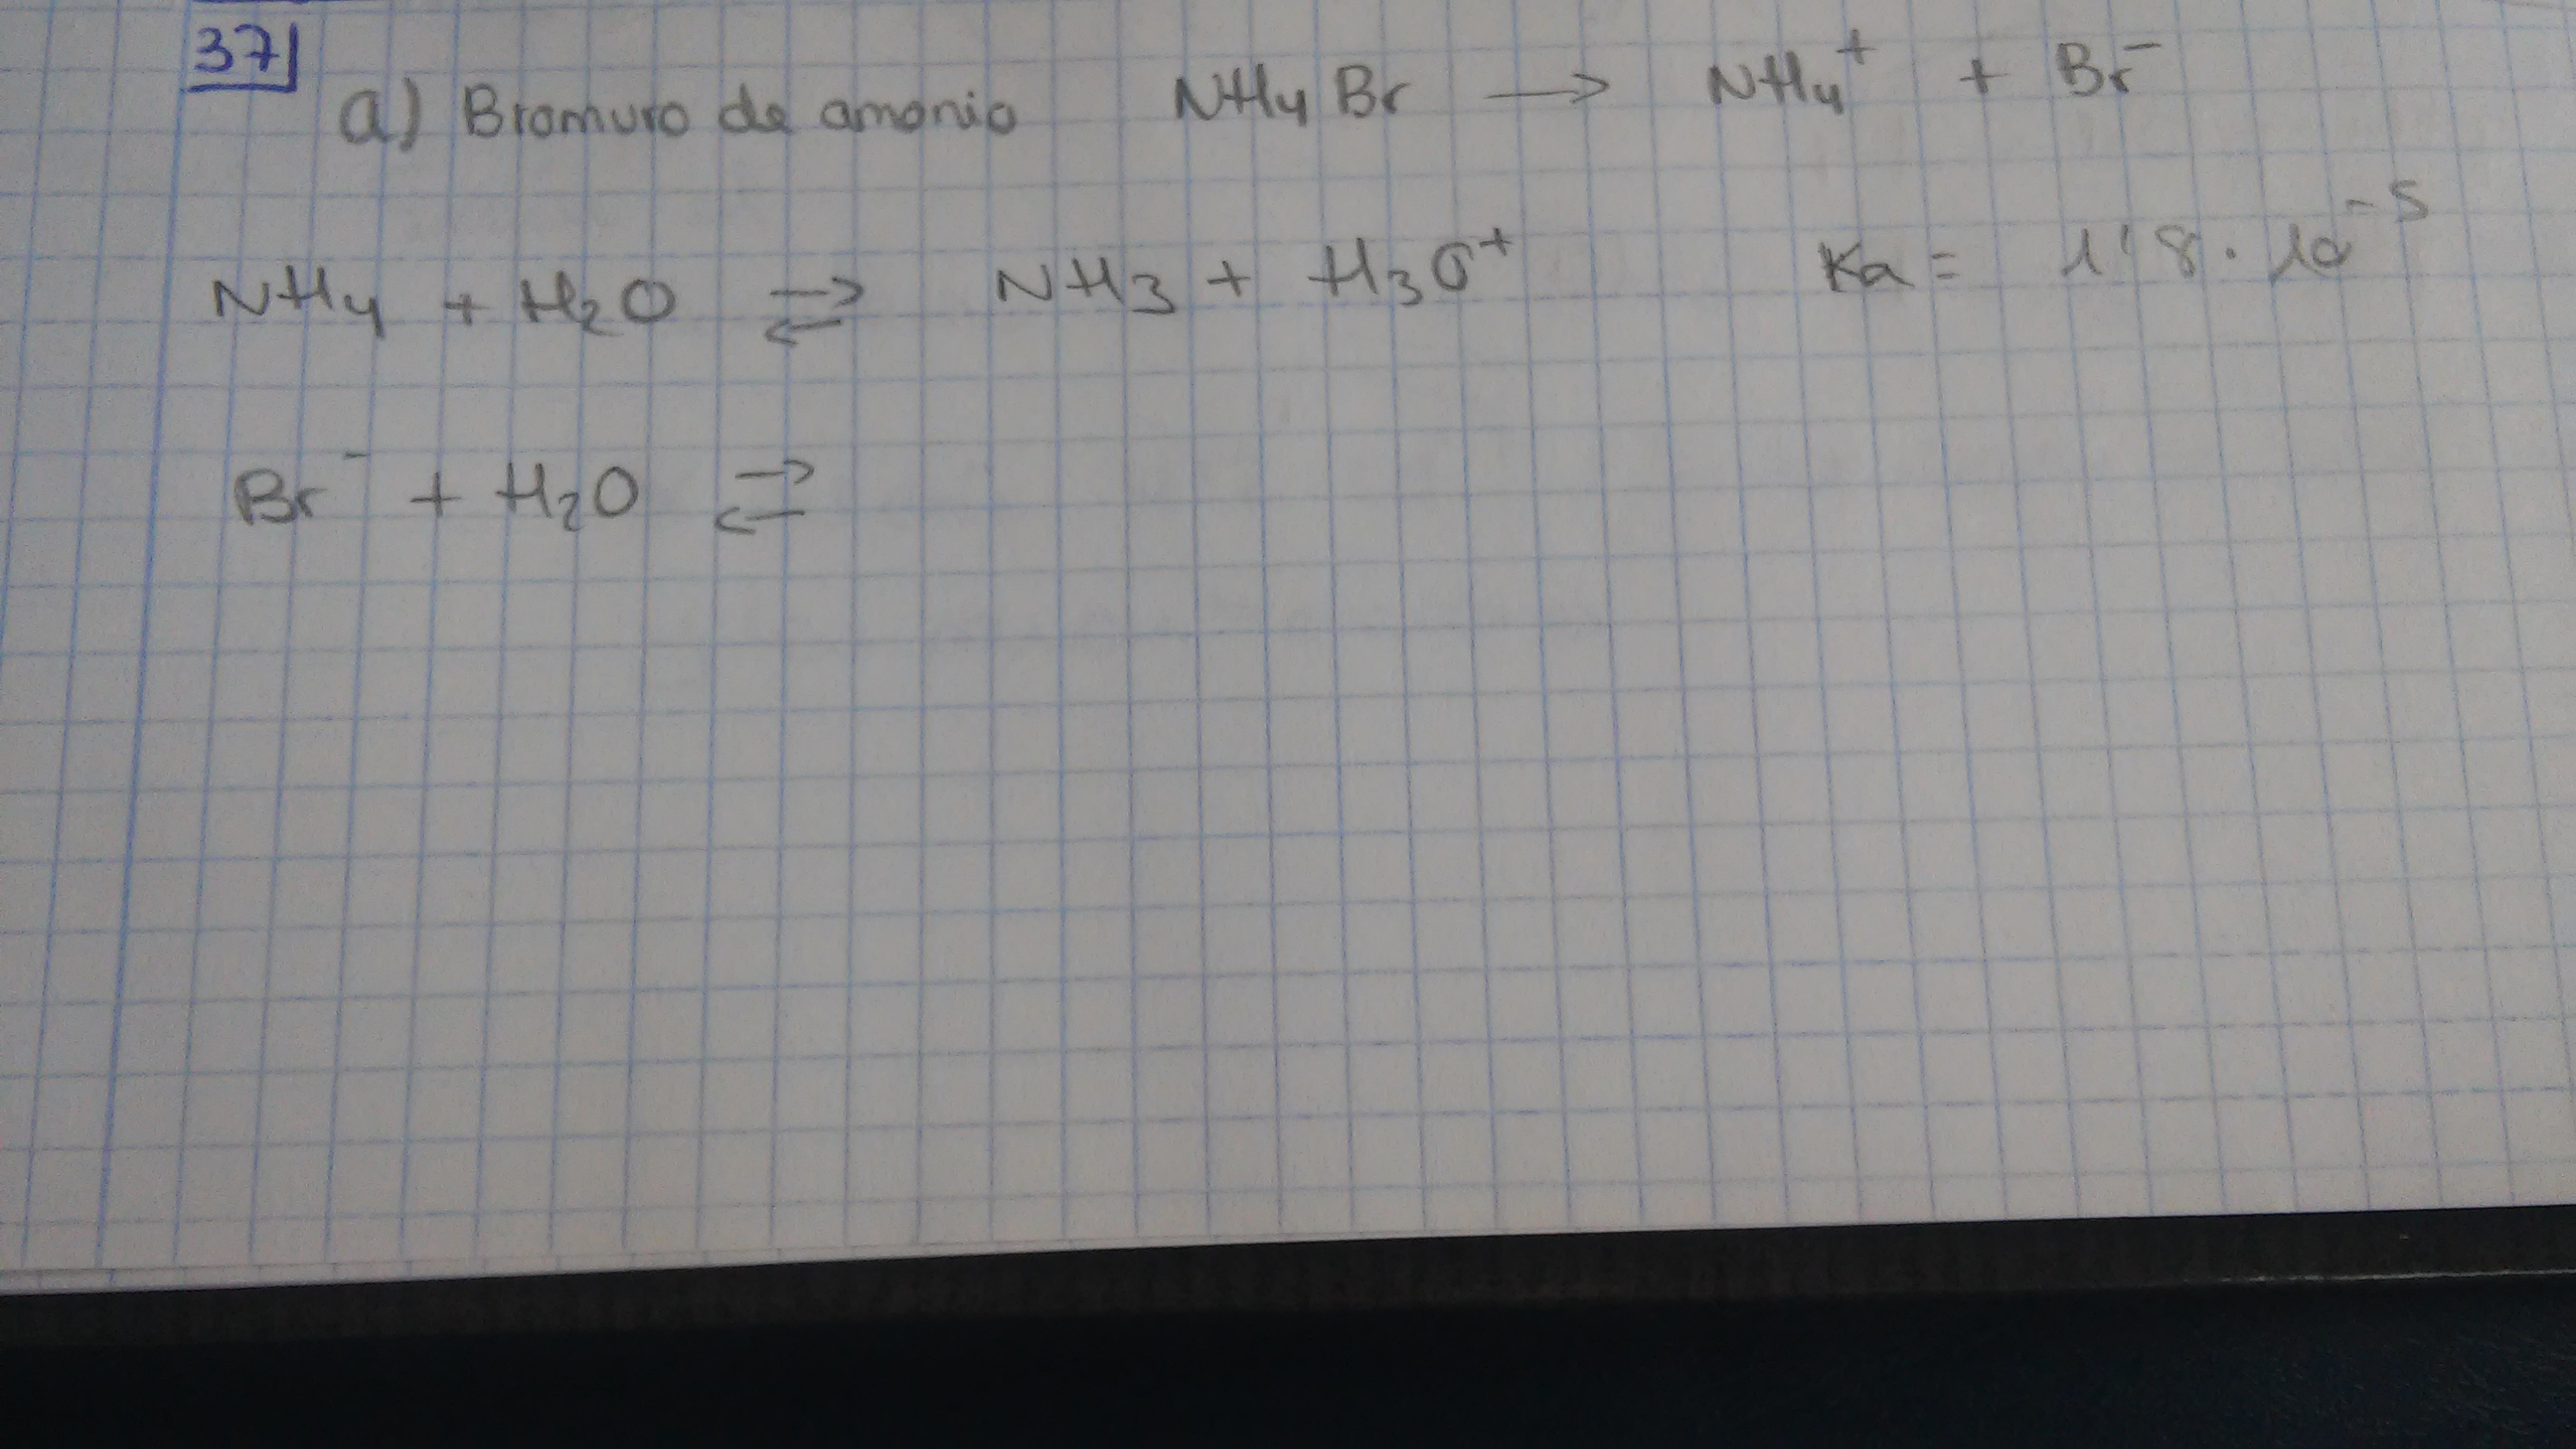 37
a) Bromuro de amonio NH4Br → NH4⁺ + Br⁻
NH4 + H2O ⇄ NH3 + H3O⁺ Ka = 1'8 · 10⁻⁵
Br⁻ + H2O ⇄